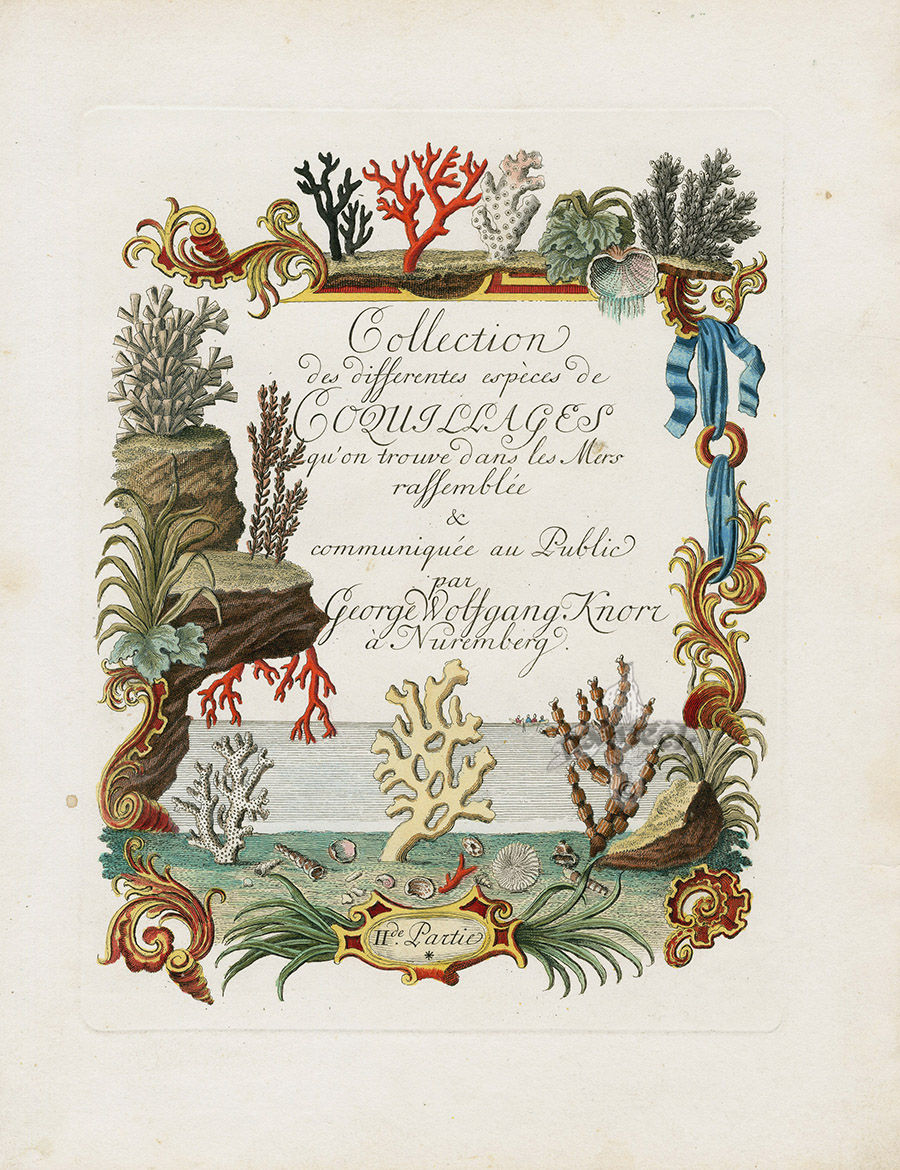 Collection
des differentes espèces de
COQUILLAGES
qu'on trouve dans les Mers
rassemblée
&
communiquée au Public
par
George Wolfgang Knorr
à Nuremberg.
IIde. Partie
*